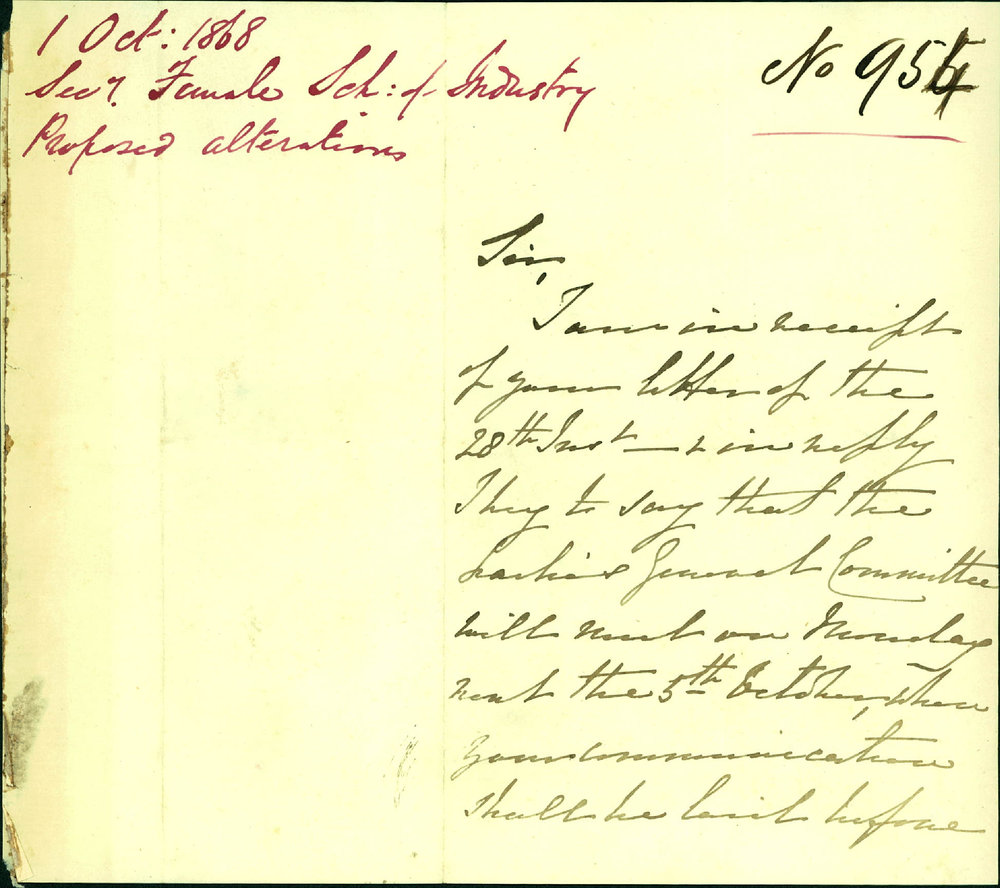 1 Oct: 1868
Secy. Female Sch: of Industry
Proposed alterations
No 954
Sir,
I am in receipt
of your letter of the
28th Inst — & in reply
I beg to say that the
Ladies General Committee
will meet on Monday
next the 5th October, when
your communication
shall be laid before